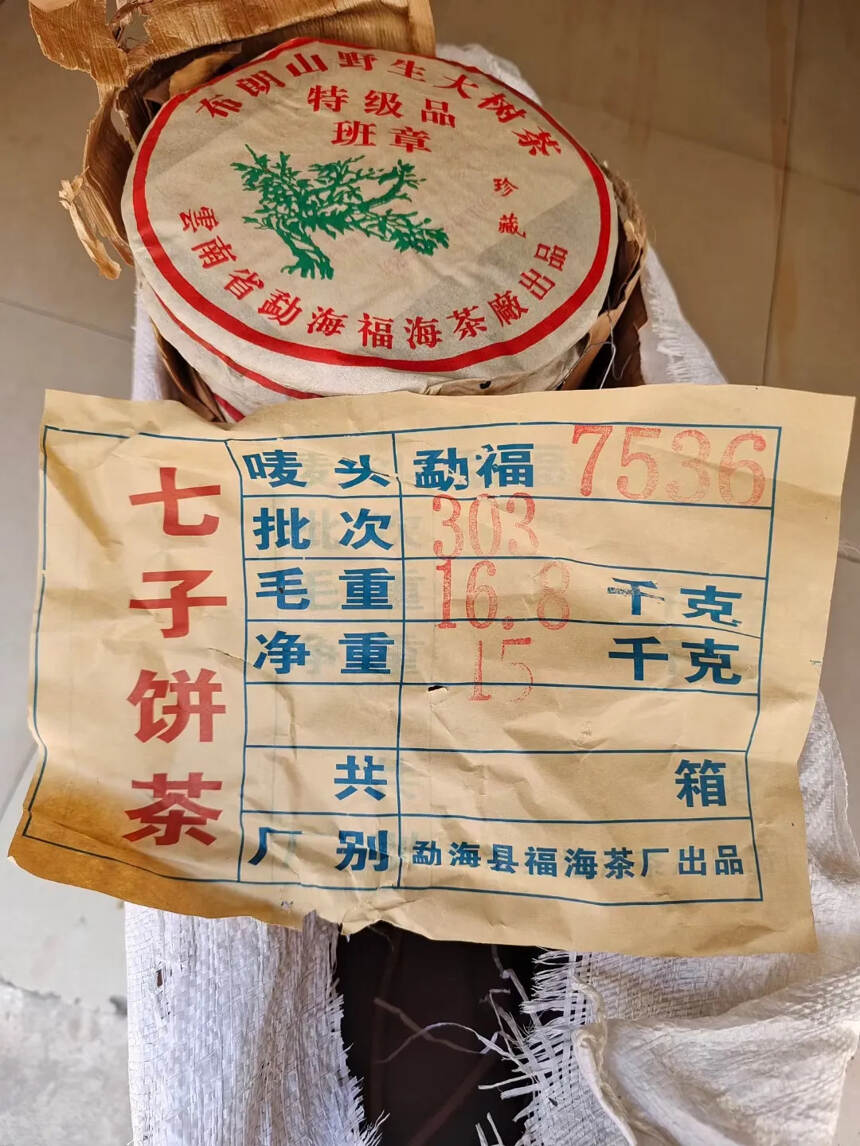 布朗山野生大树茶
特级品
班章
珍藏
雲南省勐海福海茶廠出品
七子饼茶
唛头 勐福 7536
批次 303
毛重 16.8 千克
净重 15 千克
共 箱
厂别 勐海县福海茶厂出品